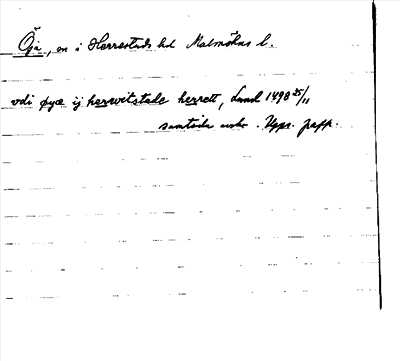 Öja, sn i Herrestads hd Malmöhus l.
vdi øyæ ij herrvitstade herrett, Lund 1498 25/11
samtida avskr. Uppr. papp.